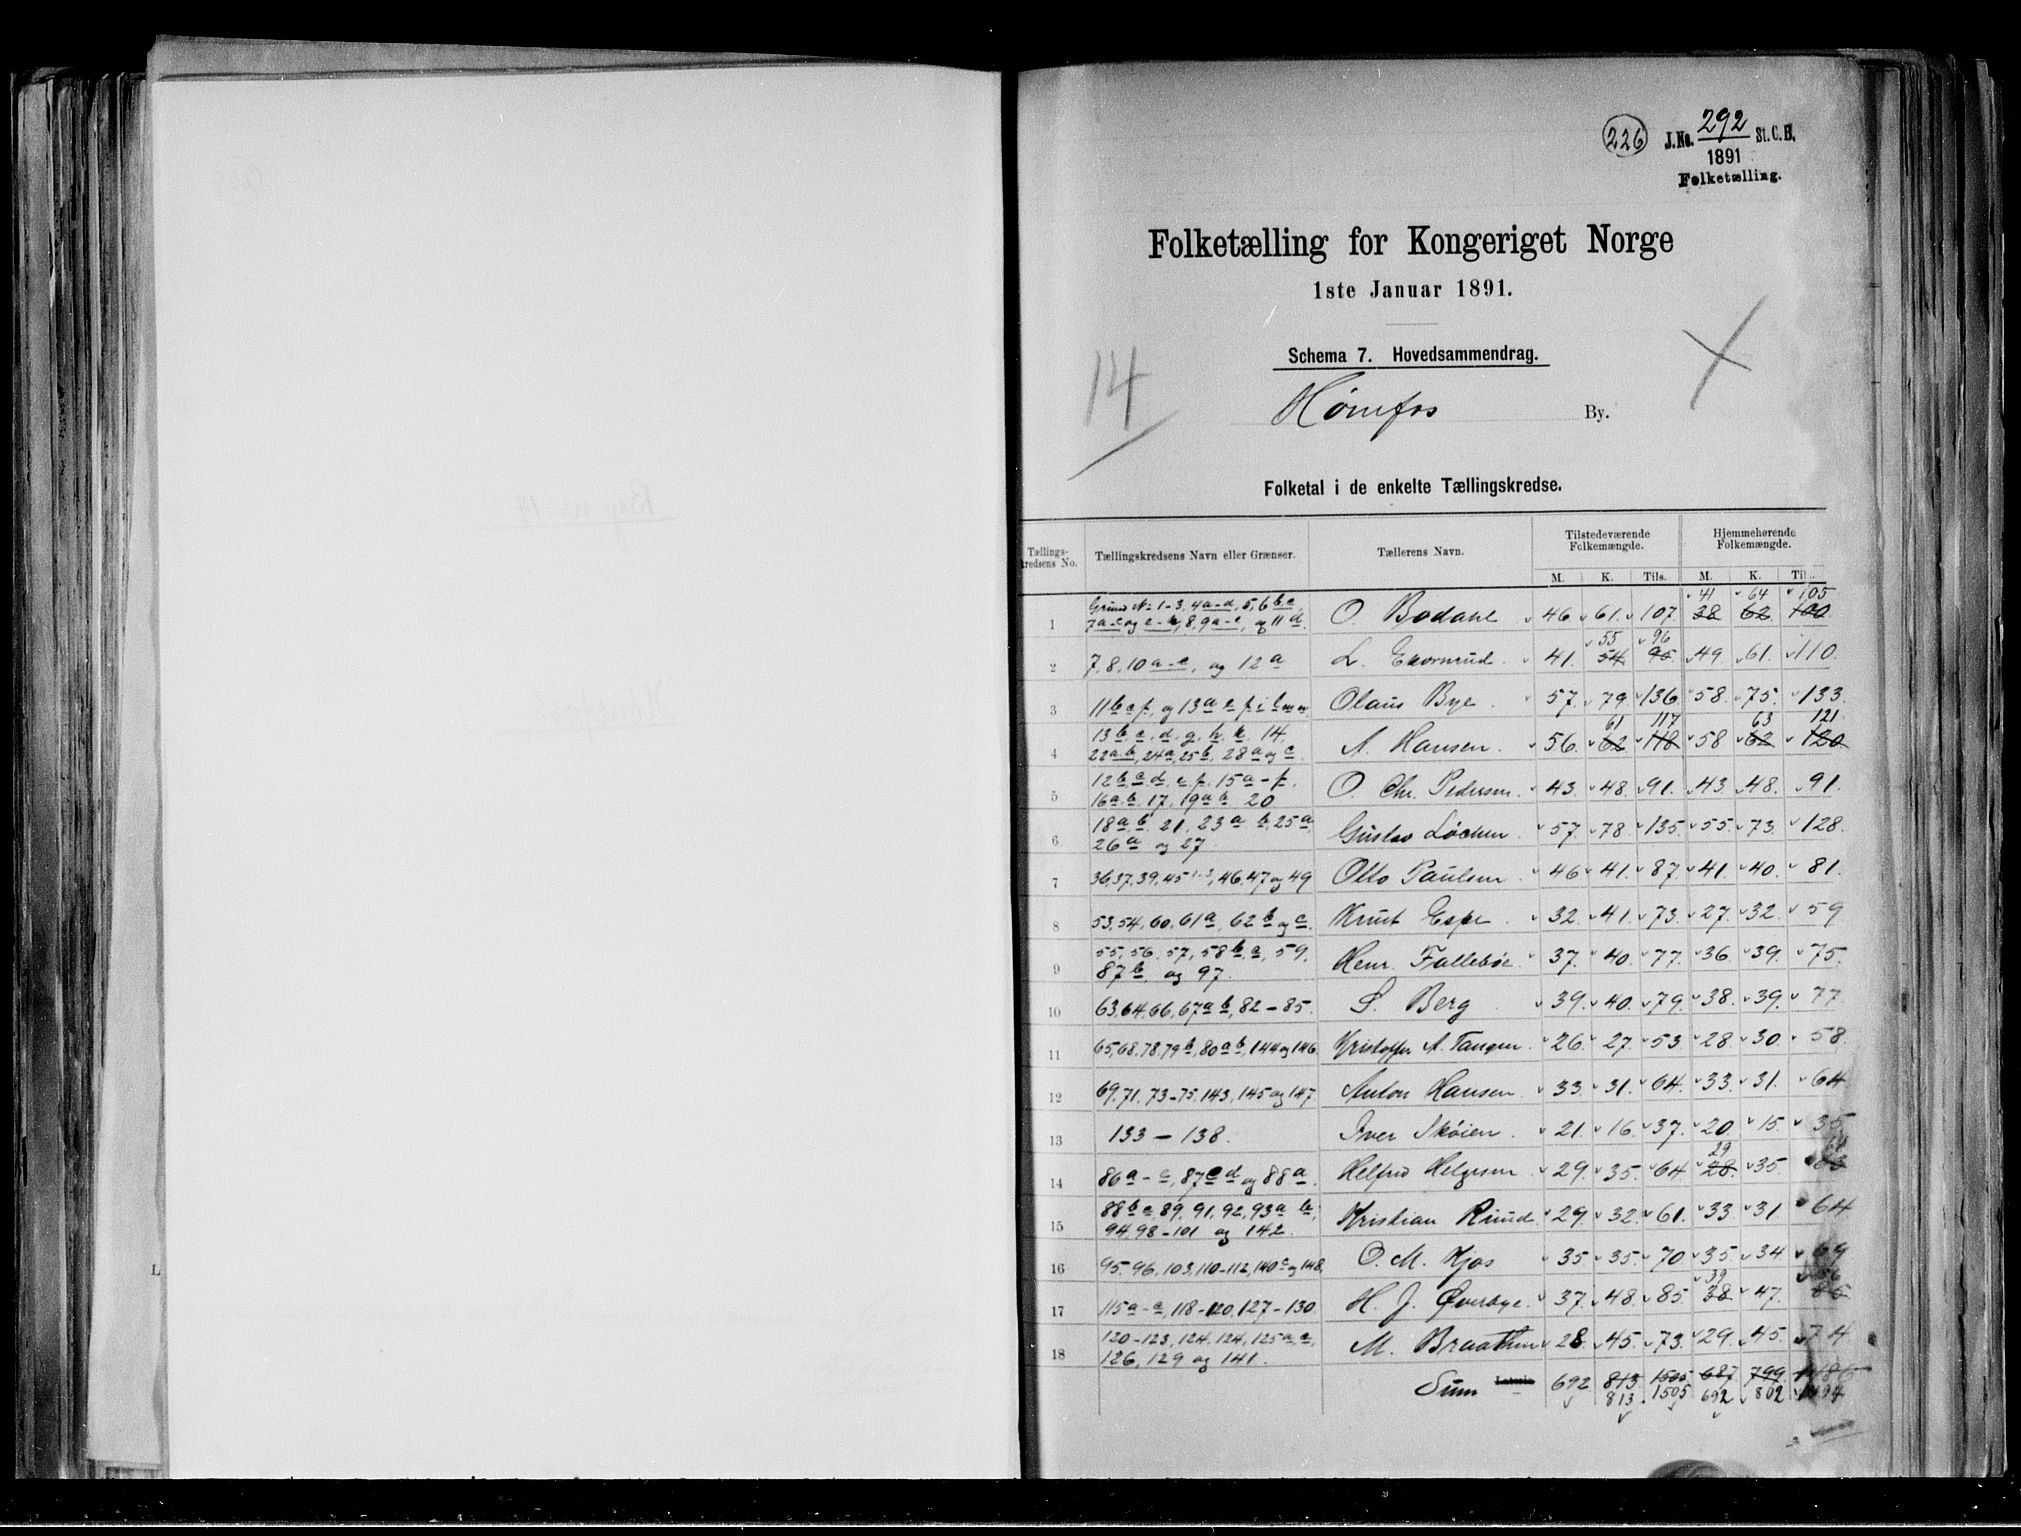 226
J.No. 292 St. C. B.
1891
Folketælling.
Folketælling for Kongeriget Norge
1ste Januar 1891.
Schema 7. Hovedsammendrag.
14
Hønefos By.
Folketal i de enkelte Tællingskredse.
Tællings-kredsens No. Tællingskredsens Navn eller Grænser. Tællerens Navn. Tilstedeværende Folkemængde. Hjemmehørende Folkemængde.
M. K. Tils. M. K. Tils.
41 64 105
1 Grund No 1-3, 4a-d, 5, 6 b c, 7a-c og e-k, 8, 9a-e, og 11d. O. Bodahl 46 61 107 38 62 100
55 96
2 7, 8, 10a-e, og 12a L. Ekornrud 41 54 95 49 61 110
3 11b e f, og 13a e f i l m n Olaus Bye 57 79 136 58 75 133
61 117 63 121
4 13b. c. d. g. h. k. 14, 22a b, 24a, 25b, 28a og c A. Hansen 56 62 118 58 62 120
5 12b. c. d. e. f. 15a-f. 16a. b. 17, 19a b 20 O. Chr. Pedersen 43 48 91 43 48 91
6 18a. b. 21, 23a b, 25a 26a og 27 Gustav Løchen 57 78 135 55 73 128
7 36, 37, 39, 45 1-3, 46, 47 og 49 Otto Paulsen 46 41 87 41 40 81
8 53, 54, 60, 61a, 62b og c. Knut Espe 32 41 73 27 32 59
9 55, 56, 57, 58b. c, 59, 87b og 97. Henr. Fallebøe 37 40 77 36 39 75
10 63, 64, 66, 67a b, 82-85. S. Berg 39 40 79 38 39 77
11 65, 68, 78, 79b, 80a b, 144 og 146 Kristoffer A. Tangen 26 27 53 28 30 58
12 69, 71, 73-75, 143, 145 og 147 Anton Hansen 33 31 64 33 31 64
13 133-138. Iver Skøien 21 16 37 20 15 35
29 64
14 86a-c, 87c d og 88a. Helfred Helgesen 29 35 64 28 35 63
15 88b c, 89, 91, 92, 93a b, 94, 98-101 og 142. Kristian Ruud 29 32 61 33 31 64
16 95, 96, 103, 110-112, 140c og 148, O. M. Kjos 35 35 70 35 34 69
39 86
17 115a-c, 118-120, 127-130 H. J. Øverbye 37 48 85 38 47 85
18 120-123, 124, 124, 125a. c, 126, 129 og 141. M. Braathen 28 45 73 29 45 74
Sum 692 813 1505 687 799 1486
813 1505 692 802 1494